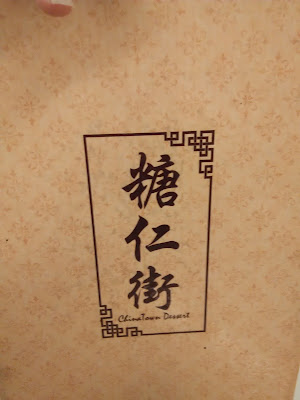 糖仁街
ChinaTown Dessert